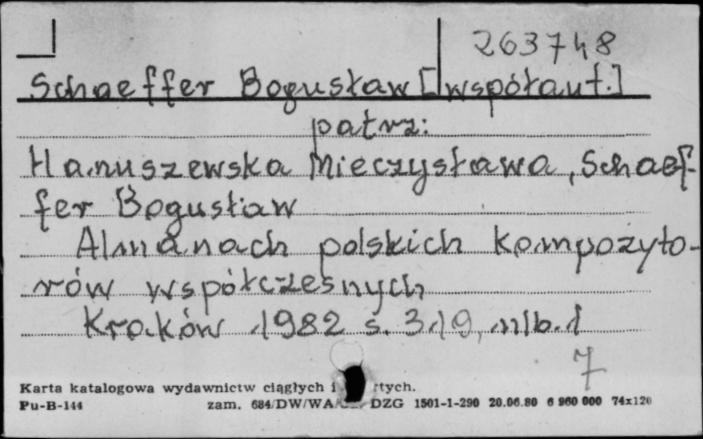 263748
Schaeffer Bogusław [współaut.]
patrz:
Hanuszewska Mieczysława, Schaef-
fer Bogusław
Almanach polskich kompozyto-
rów współczesnych
Kraków 1982 s. 319, nlb. 1
7
Karta katalogowa wydawnictw ciągłych i rtych.
Pu-B-144 zam. 684/DW/WA DZG 1501-1-290 20.06.80 6 960 000 74x120